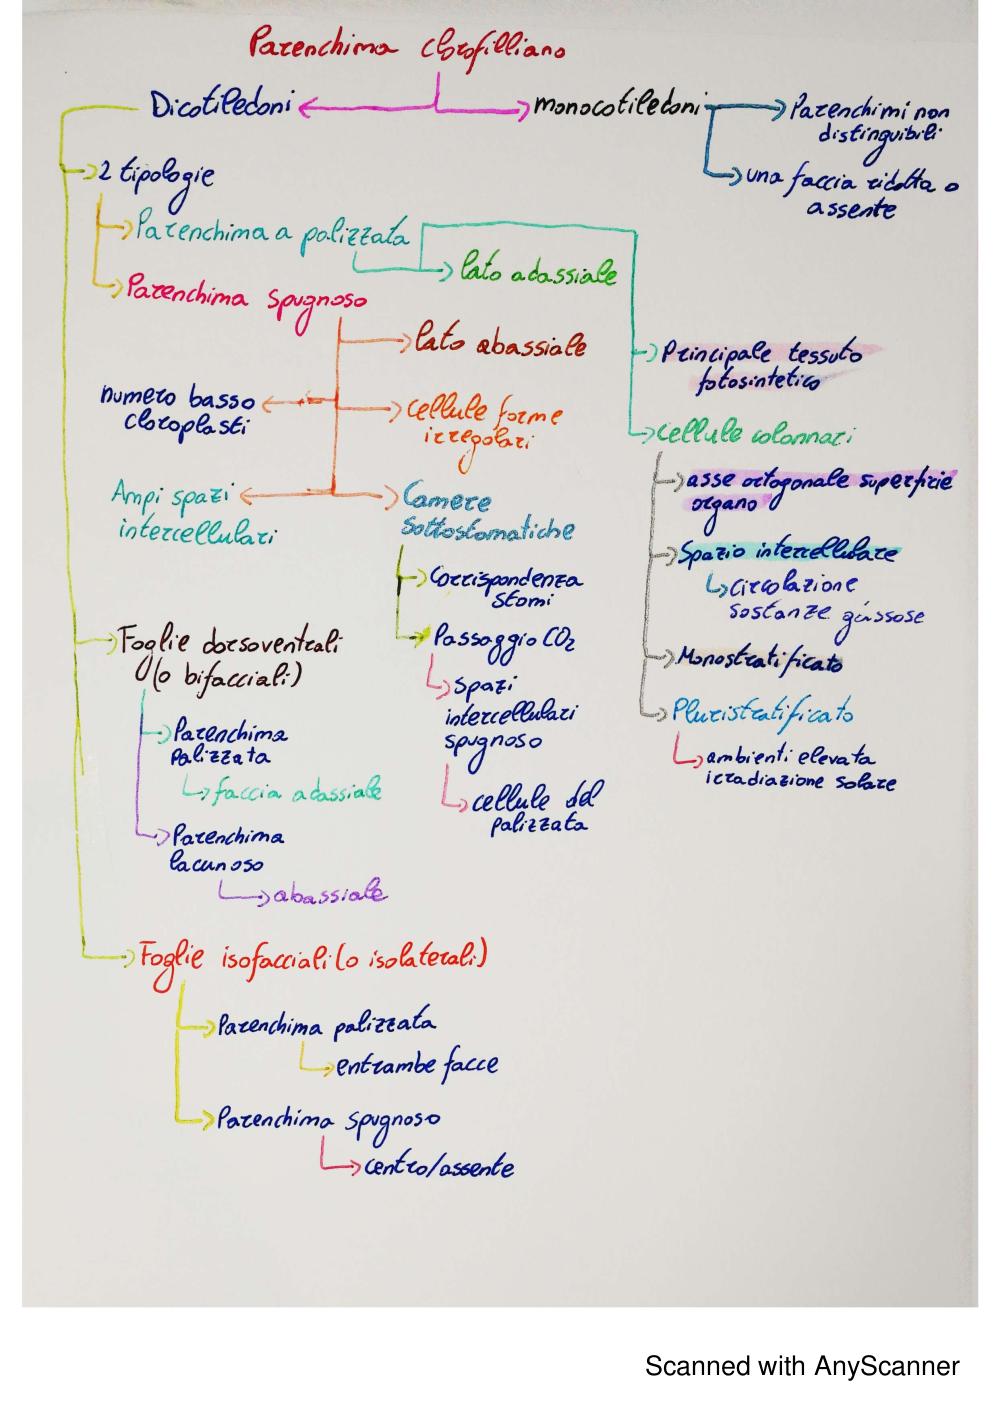 Parenchima clorofilliano
Dicotiledoni
monocotiledoni
Parenchimi non
distinguibili
una faccia ridotta o
assente
2 tipologie
Parenchima a palizzata
lato adassiale
Parenchima spugnoso
lato abassiale
Principale tessuto
fotosintetico
numero basso
cloroplasti
cellule forme
irregolari
cellule colonnari
asse ortogonale superficie
organo
Ampi spazi
intercellulari
Camere
sottostomatiche
Spazio intercellulare
circolazione
sostanze gassose
Corrispondenza
stomi
Passaggio CO2
Monostratificato
Foglie dorsoventrali
(o bifacciali)
spazi
intercellulari
spugnoso
Pluristratificato
ambienti elevata
irradiazione solare
Parenchima
palizzata
faccia adassiale
cellule del
palizzata
Parenchima
lacunoso
abassiale
Foglie isofacciali (o isolaterali)
Parenchima palizzata
entrambe facce
Parenchima spugnoso
centro/assente
Scanned with AnyScanner